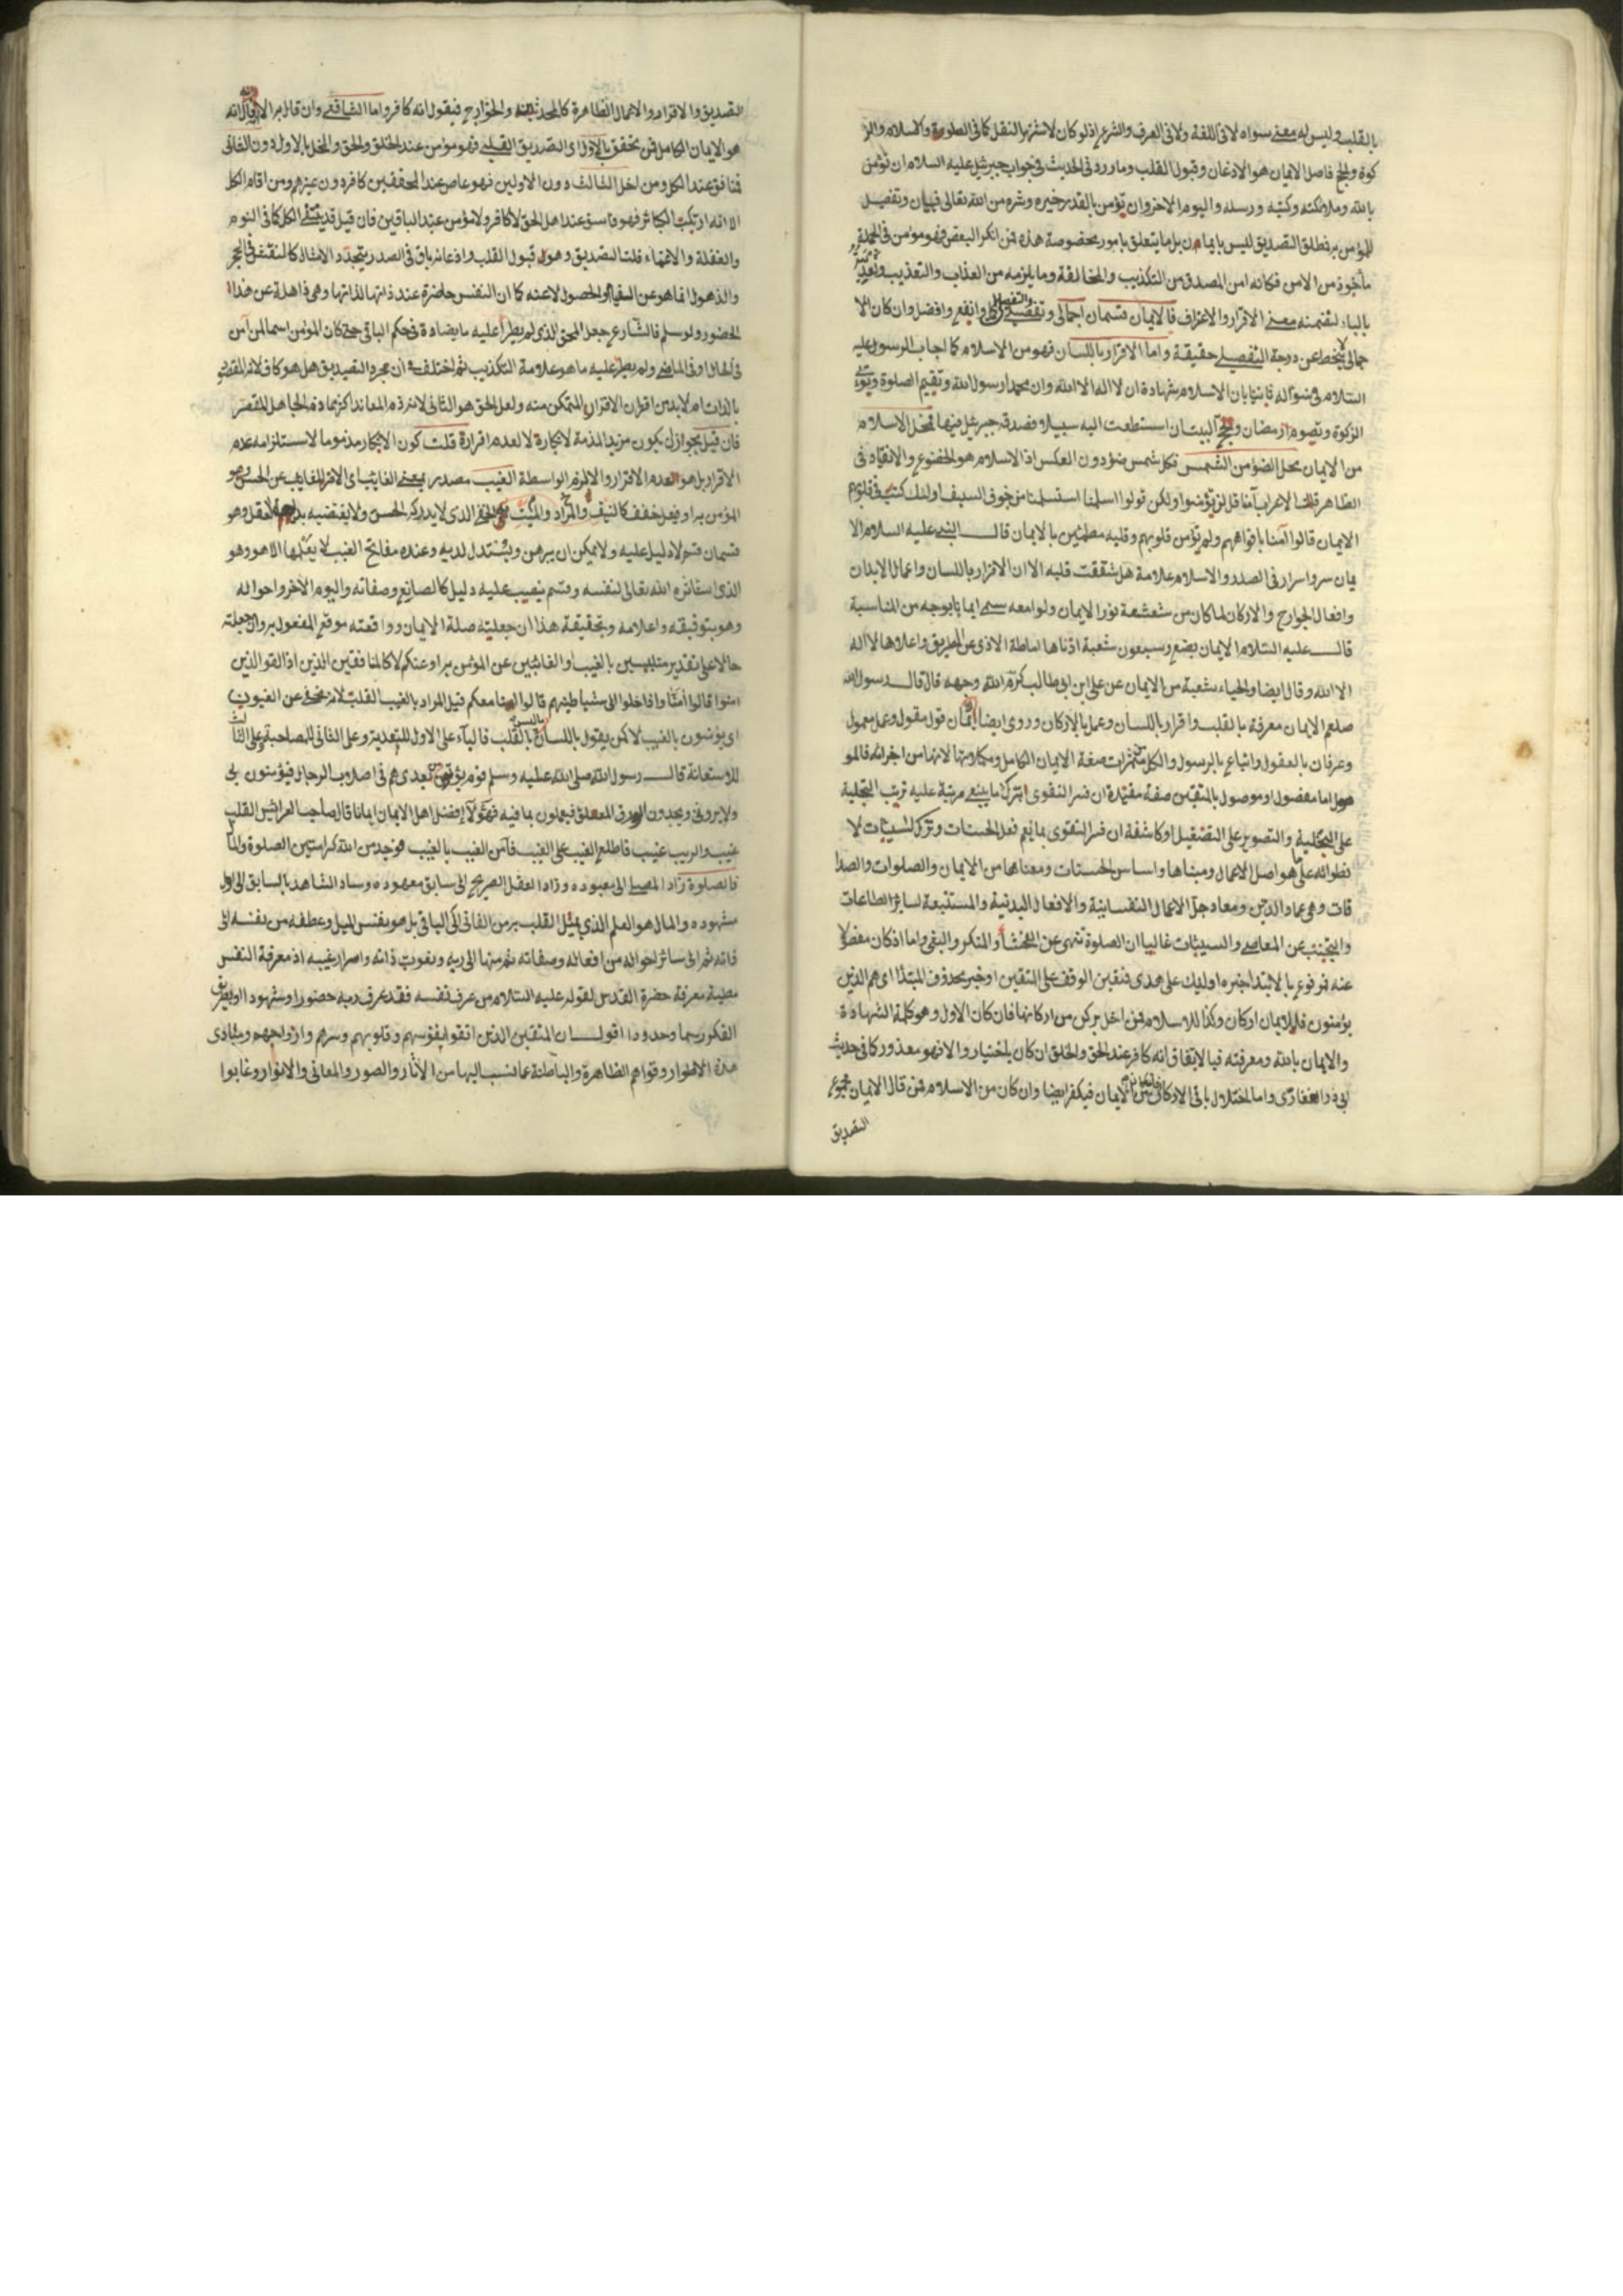 بالقلب وليس له معنى سواه لا فى اللغة ولا فى العرف والشرع اذ لو كان لاشتهر بالنقل كما فى الصلوة والاسلام والز
كوة والحج فاصل الايمان هو الاذعان وقبول القلب وما ورد فى الحديث فى جواب جبرئيل عليه السلام ان تؤمن
بالله وملائكته وكتبه ورسله واليوم الاخر وان تؤمن بالقدر خيره وشره من الله تعالى فبيان وتفصيل
للمؤمن به فمطلق التصديق ليس بايمان بل ما يتعلق بامور مخصوصة هذه فمن انكر البعض فهو مؤمن فى الجملة
مأخوذ من الامن فكانه امن المصدق من التكذيب والمخالفة وما يلزمه من العذاب والتعذيب
بالباء لتضمنه معنى الاقرار والاعتراف فالايمان قسمان اجمالى وتفصيلى وانفع وافضل وان كان الا
جمالى لا ينحط عن درجة التفصيلى حقيقة واما الاقرار باللسان فهو من الاسلام كما اجاب الرسول عليه
السلام فى سؤاله ثانيا بان الاسلام شهادة ان لا اله الا الله وان محمدا رسول الله وتقيم الصلوة وتؤتى
الزكوة وتصوم رمضان وتحج البيت ان استطعت اليه سبيلا وصدقه جبرئيل فيهما فمحل الاسلام
من الايمان محل الضوء من الشمس فكل شمس ضوء دون العكس اذ الاسلام هو الخضوع والانقياد فى
الظاهر قالت الاعراب آمنا قل لن تؤمنوا ولكن قولوا اسلمنا استسلمنا من خوف السيف اولئك كتب فى قلوبهم
الايمان قالوا آمنا بافواههم ولم تؤمن قلوبهم وقلبه مطمئن بالايمان قال النبى عليه السلام الا
يمان سر واسرار فى الصدر والاسلام علامة هل شققت قلبه الا ان الاقرار باللسان واعمال الابدان
وافعال الجوارح والاركان لما كان من شعشعة نور الايمان ولوامعه سمى ايمانا بوجه من المناسبة
قال عليه السلام الايمان بضع وسبعون شعبة ادناها اماطة الاذى عن الطريق واعلاها لا اله
الا الله وقال ايضا والحياء شعبة من الايمان عن على ابن ابى طالب كرم الله وجهه قال قال رسول الله
صلعم الايمان معرفة بالقلب واقرار باللسان وعمل بالاركان وروى ايضا ايمان قول مقول وعمل معمول
وعرفان بالعقول واتباع بالرسول والكل ثمرات صفة الايمان الكامل لانها من اجزائه فالمو
صول اما مفصول او موصول بالمتقين صفة مقيدة ان فسر التقوى بترك ما ينبغى مرتبة عليه ترتب التحلية
على التخلية والتصوير على التصقيل او كاشفة ان فسر التقوى بما يعم فعل الحسنات وترك السيئات لا
نطوائه على ما هو اصل الاعمال ومبناها واساس الحسنات ومعناها من الايمان والصلوات والصدا
قات وهى عماد الدين ومعاد جل الاعمال النفسانية والافعال البدنية والمستتبعة لسائر الطاعات
والتجنب عن المعاصى والسيئات غالبا ان الصلوة تنهى عن الفحشاء والمنكر والبغى واما اذ كان مفصولا
عنه فمرفوع بالابتداء خبره اولئك على هدى فتقين الوقف على المتقين او خبر محذوف المبتدا اى هم الذين
يؤمنون فللايمان اركان وكذا للاسلام فمن اخل بركن من اركانها فان كان الاول وهو كلمة الشهادة
والايمان بالله ومعرفته فبالاتفاق انه كافر عند الحق والخلق ان كان باختيار والا فهو معذور كما فى حديث
ابى ذر الغفارى واما اختلال باقى الاركان الايمان فيكفر ايضا وان كان من الاسلام فمن قال الايمان مجموع
التصديق
التصديق والاقرار والاعمال الظاهرة كالمحدثين والخوارج فيقول انه كافر واما الشافعى وان قال به الا انه
هو الايمان الكامل فمن تحقق بالاول اى التصديق القلبى فهو مؤمن عند الخلق والحق والمخل بالاول دون الثانى
منافق عند الكل ومن اخل الثالث دون الاولين فهو عاص عند المحققين كافر دون غيرهم ومن اقام الكل
الا انه ارتكب الكبائر فهو فاسق عند اهل الحق لا كافر ولا مؤمن عند الباقين فان قيل قد ينتفى الكل كما فى النوم
والغفلة والاغماء قلت التصديق وهو قبول القلب واذعانه باق فى الصدر يتجدد الامثال كالنقش فى الحجر
والذهول انما هو عن البقاء والحصول لا عنه كما ان النفس حاضرة عند ذاتها لذاتها وهى ذاهلة عن هذا
الحضور ولو سلم فالشارع جعل المحقق الذى لم يطرأ عليه ما يضاده فى حكم الباقى حتى كان المؤمن اسما لمن آمن
فى الحال او فى الماضى ولم يطرأ عليه ما هو علامة التكذيب ثم اختلف فى ان مجرد التصديق هل هو كاف لانه المقصود
بالذات ام لا بد من اقتران الاقرار للمتمكن منه ولعل الحق هو الثانى لانه ذم المعاند اكثر مما ذم الجاهل المقصر
فان قيل يجوز ان يكون مزيد المذمة لانكاره لا لعدم اقراره قلت كون الانكار مذموما لاستلزامه عدم
الاقرار بل هو العدم الاقرار والا لزم الواسطة الغيب مصدر بمعنى الغائب اى الامر الغائب عن الحس وهو
المؤمن به او فيعل خفف كالنيف والمراد والميت الخفى الذى لا يدركه الحس ولا يقتضيه بديهة العقل وهو
قسمان قسم لا دليل عليه ولا يمكن ان يبرهن ويستدل لديه وعنده مفاتح الغيب لا يعلمها الا هو وهو
الذى استأثره الله تعالى لنفسه وقسم نصب عليه دليل كالصانع وصفاته واليوم الآخر واحواله
وهو بتوفيقه واعلامه وتحقيقه هذا ان جعلته صلة الايمان واوقعته موقع المفعول به وان جعلته
حالا على تقدير متلبسين بالغيب او الغائبين عن المؤمن به او عنكم لا كالمنافقين الذين اذا لقوا الذين
امنوا قالوا آمنا واذا خلوا الى شياطينهم قالوا انا معكم قيل المراد بالغيب القلب لانه مخفى عن العيون
اى يؤمنون بالغيب لا كمن يقول باللسان بالقلب فالباء على الاول للتعدية وعلى الثانى للمصاحبة وعلى الثالث
للاستعانة قال رسول الله صلى الله عليه وسلم قوم يؤتون من بعدى هم فى اصلاب الرجال فيؤمنون بى
ولا يرونى ويجدون الورق المعلق فيعملون بما فيه فهؤلاء افضل اهل الايمان ايمانا قال صاحب العرائس القلب
غيب والرب غيب فاطلع الغيب على الغيب فآمن الغيب بالغيب فوجد من الله كرامتين الصلوة والمال
فالصلوة زاد المصلى الى معبوده وزاد العقل الصريح الى سابق معهوده وساد الشاهد بالسابق الى اول
مشهوده والمال هو العلم الذى يميل القلب به من الفانى الى الباقى بل هو نفس الميل وعطفه من نفسه الى
ذاته ثم الى سائر احواله من افعاله وصفاته ثم منها الى ربه ونعوت ذاته واسرار غيبه اذ معرفة النفس
مطية معرفة حضرة القدس لقوله عليه السلام من عرف نفسه فقد عرف ربه حضورا وشهودا او بطريق
الفكر رسما وحدودا اقول ان المتقين الذين اتقوا بنفوسهم وقلوبهم وسرهم وارواحهم ومبادى
هذه الاطوار وقواهم الظاهرة والباطنة عما نسب اليها من الآثار والصور والمعانى والانوار وغابوا